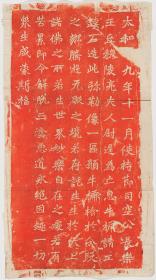 太和九年十一月使持節司空公長樂
王丘穆陵亮夫人尉遲為亡息牛橛請工
鏤石造此彌勒像一區願牛橛捨於分段
之鄉騰遊無礙之境若存託生生於天上
諸佛之所若生世界妙樂自在之處若有
苦累即令解脫三塗惡道永絕因趣一切
眾生咸蒙斯福